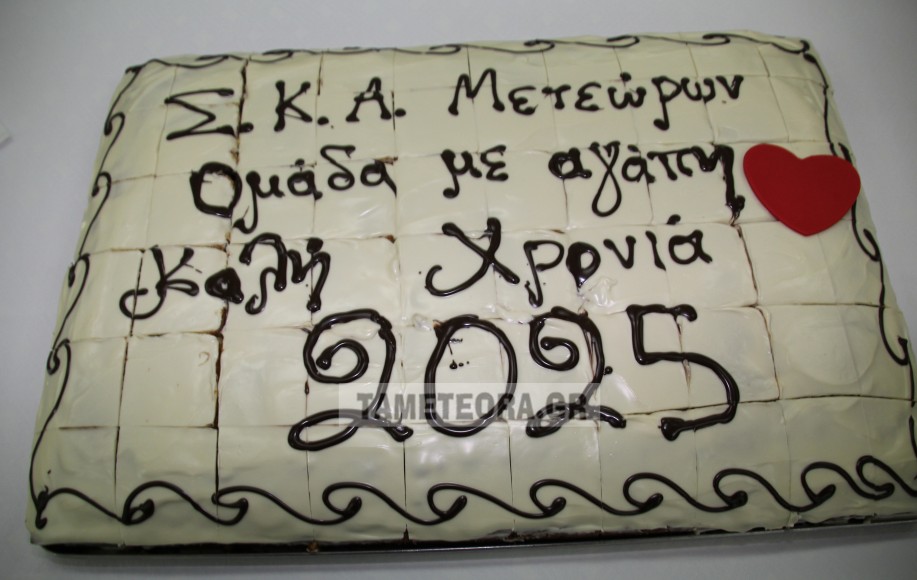 Σ.Κ.Α. Μετεώρων
Ομάδα με αγάπη
Καλή Χρονιά
2025
TAMETEORA.GR